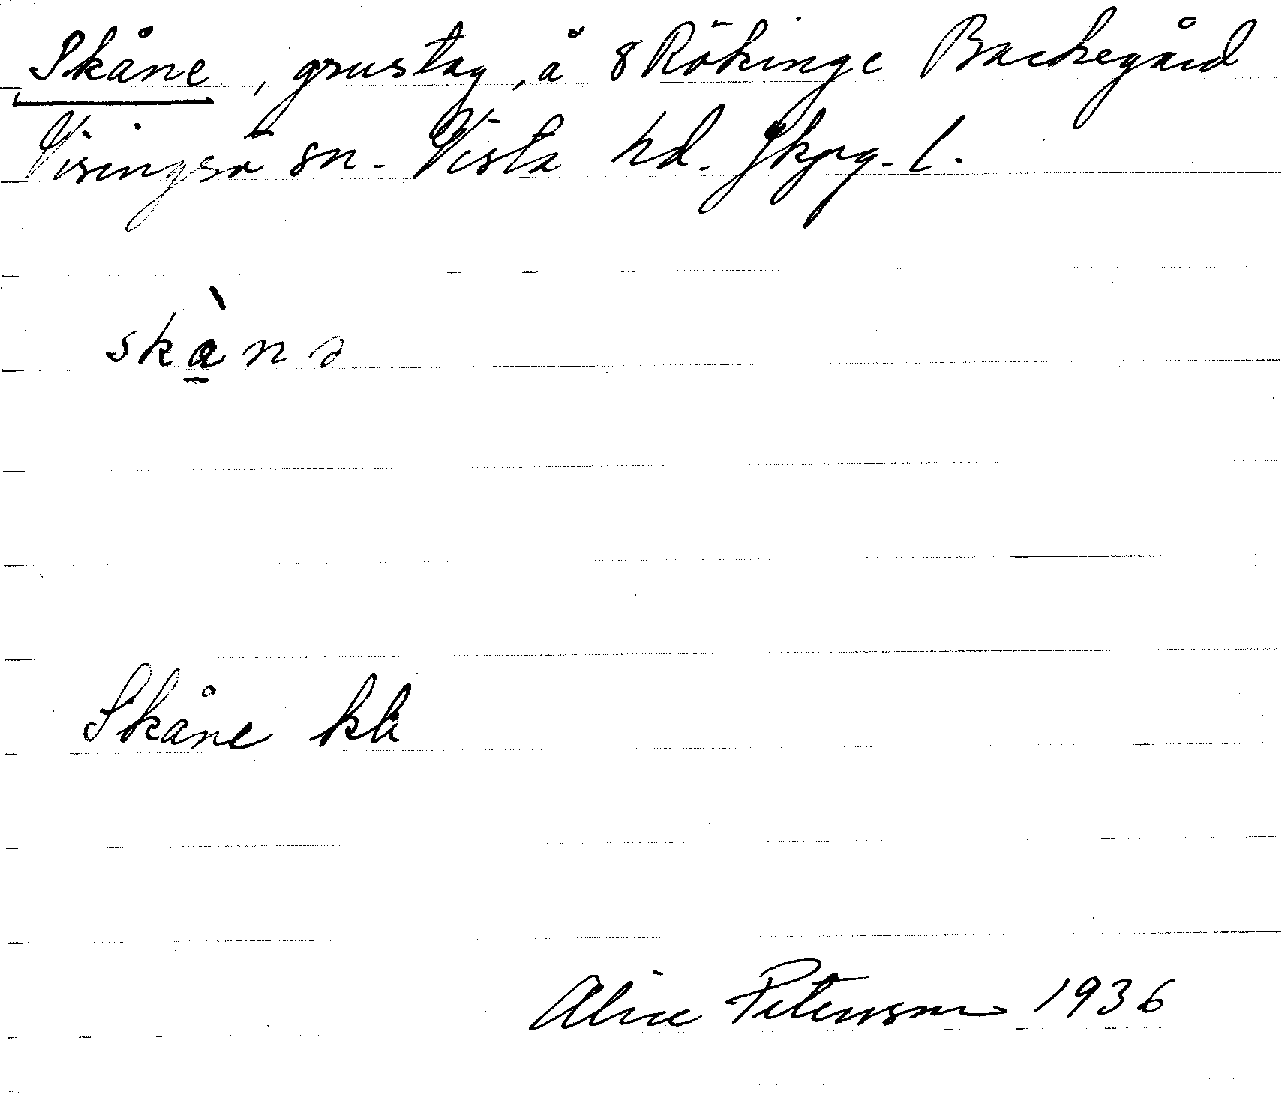 Skåne, grustag, å 8 Rökinge Backegård
Visingsö sn. Vista hd. Jkpg. l.
skànə
Skåne kk
Alice Petersson 1936